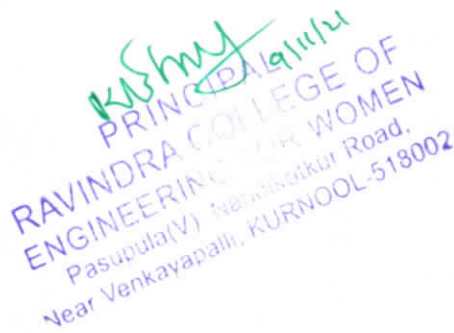 9/11/21
PRINCIPAL
RAVINDRA COLLEGE OF
ENGINEERING FOR WOMEN
Pasupula(V) Nandikotkur Road,
Near Venkayapalli, KURNOOL-518002